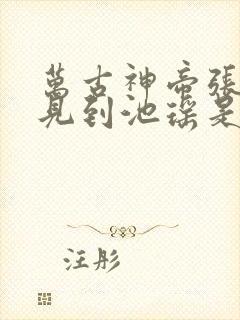 萬古神帝張
見到池瑤是
汪彤